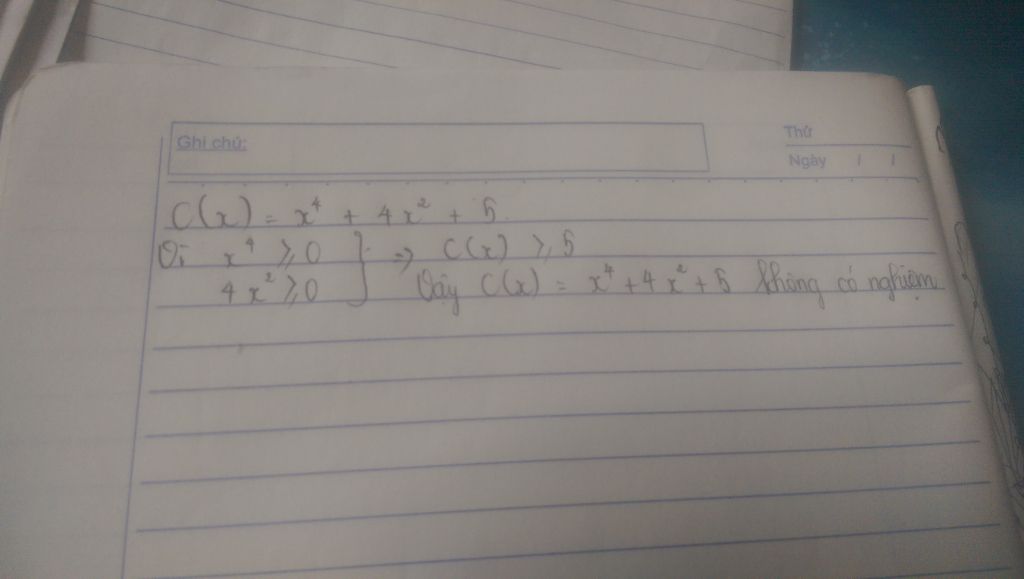 Ghi chú:
Thứ
Ngày / /
C(x) = x⁴ + 4x² + 5
Vì x⁴ ⩾ 0 } => C(x) ⩾ 5
4x² ⩾ 0 Vậy C(x) = x⁴ + 4x² + 5 không có nghiệm